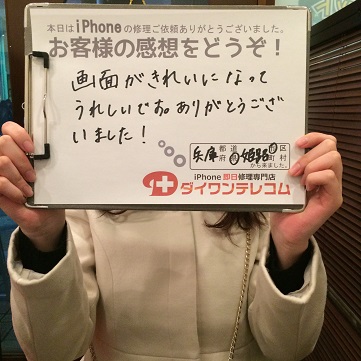 本日はiPhoneの修理ご依頼ありがとうございました。
お客様の感想をどうぞ!
画面がきれいになって
うれしいです。ありがとうござ
いました!
兵庫 都道府県 姫路 市区町村
から来ました。
iPhone 即日修理専門店
ダイワンテレコム